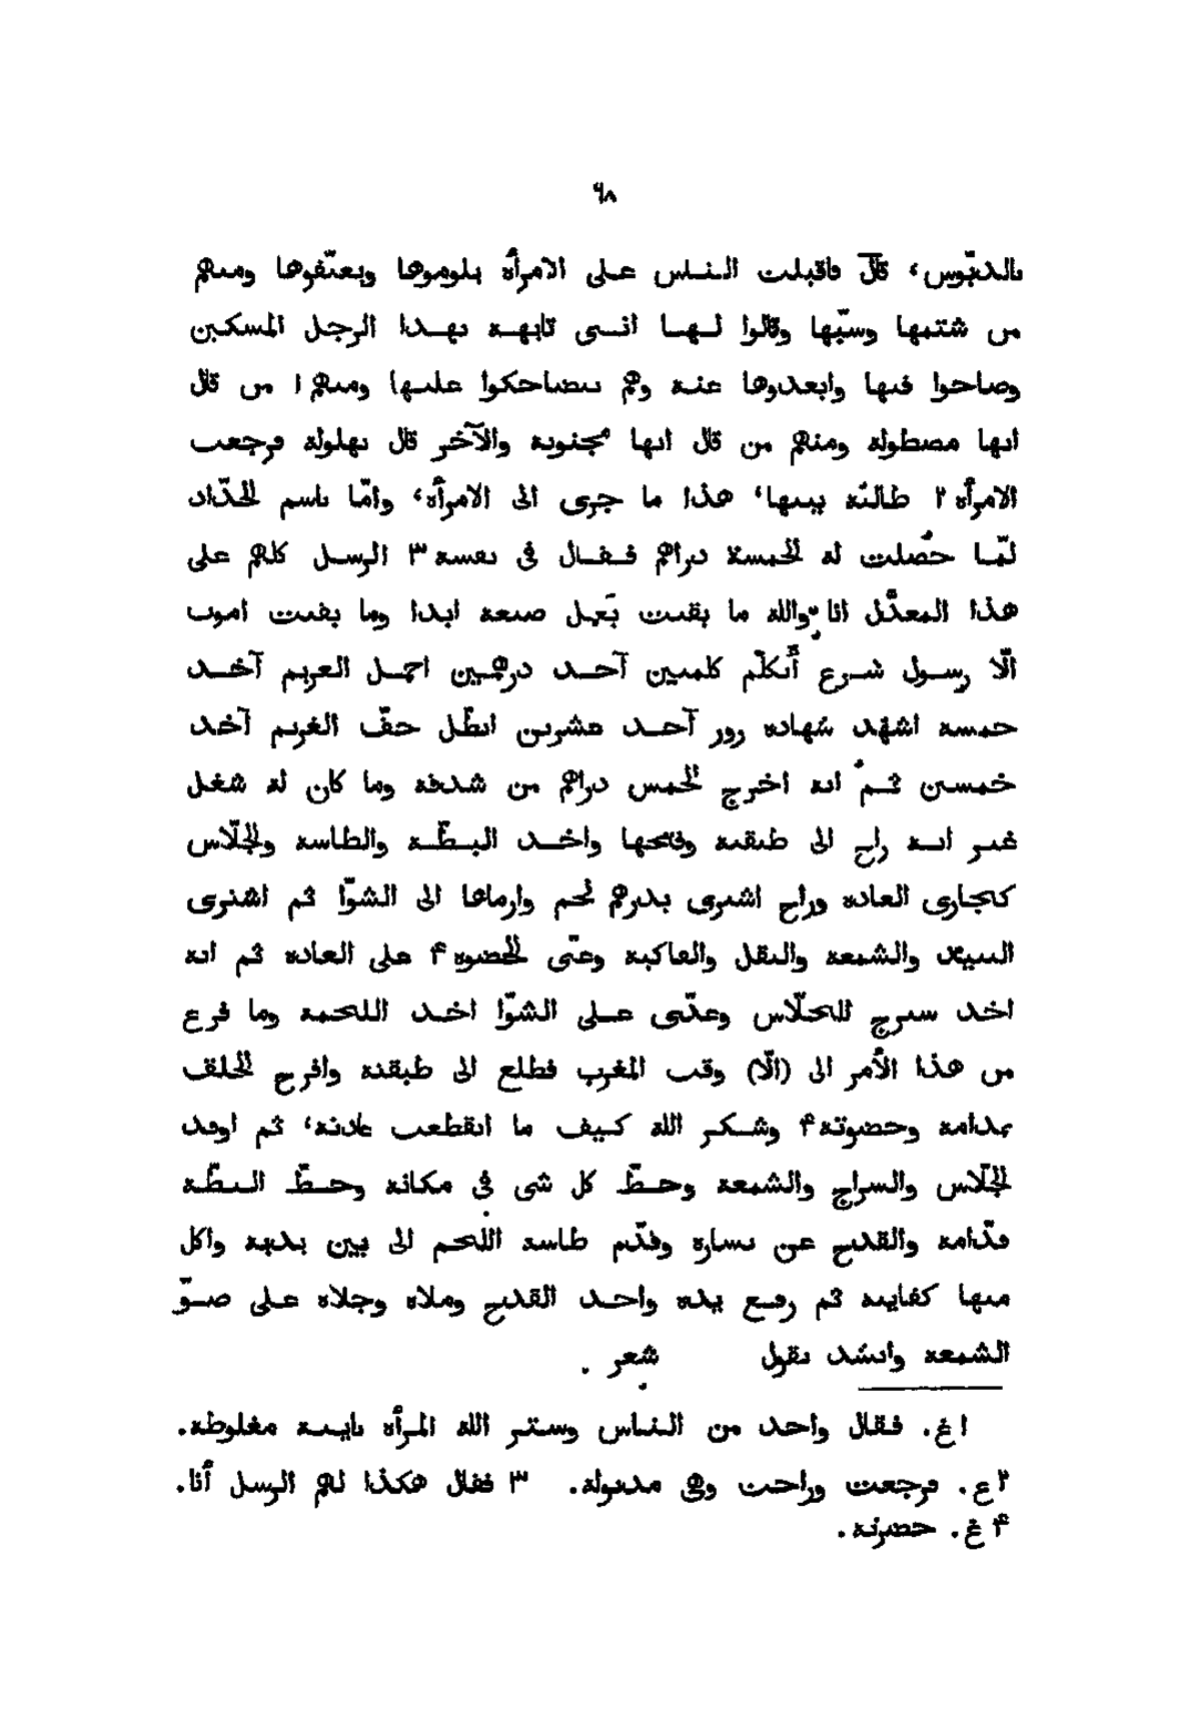 ٦٨
بالدبّوس، قال فاقبلت الناس على الامرأه يلوموها ويعنّفوها ومنهم
من شتمها وسبّها وقالوا لها انتى تايهه بهذا الرجل المسكين
وصاحوا فيها وابعدوها عنه وهم يتضاحكوا عليها ومنهم ١ من قال
انها مصطوله ومنهم من قال انها مجنونه والآخر قال بهلوله فرجعت
الامرأه ٢ طالبه بيتها، هذا ما جرى الى الامرأه، وامّا باسم الحدّاد
لمّا حصلت له الخمسة دراهم فقال فى نفسه ٣ الرسل كلهم على
هذا المعدّل انا والله ما بقيت بعمل صنعه ابدا وما بقيت اموت
الّا رسول شرع أتكلّم كلمتين آخد درهمين احمل الغريم آخد
خمسه اشهد شهاده زور آخد عشرين ابطّل حقّ الغريم آخد
خمسين ثم انه اخرج الخمس دراهم من شدقه وما كان له شغل
غير انه راح الى طبقته وفتحها واخد البطّه والطاسه والجلّاس
كجارى العاده وراح اشترى بدرهم لحم وارماها الى الشوّا ثم اشترى
النبيد والشمعه والنقل والفاكهه وعبّى الحضوه ٤ على العاده ثم انه
اخد سيرج للجلّاس وعدّى على الشوّا اخد اللحمه وما فرغ
من هذا الأمر الى (الّا) وقت المغرب فطلع الى طبقته وافرح الخلق
بدامه وحضوته ٤ وشكر الله كيف ما انقطعت عادته، ثم اوقد
الجلّاس والسراج والشمعه وحطّ كل شى فى مكانه وحطّ البطّه
قدّامه والقدح عن يساره وقدّم طاسه اللحم الى بين يديه واكل
منها كفايته ثم رفع يده واخد القدح وملاه وجلاه على ضوّ
الشمعه وانشد يقول شعر .
١ غ. فقال واحد من الناس وستر الله المرأه تايهه مغلوطه.
٢ ع. فرجعت وراحت وهى مدبوله. ٣ فقال هكذا لهم الرسل أنا.
٤ غ. حضرته.